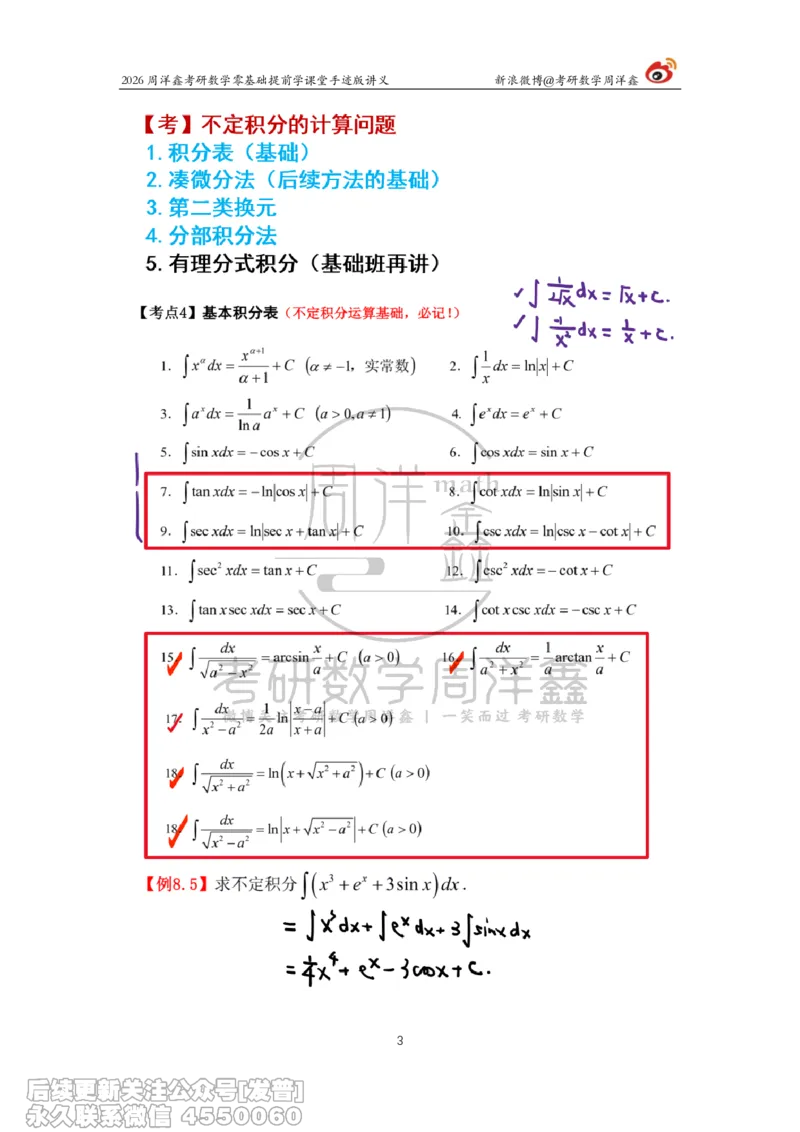 2026 周洋鑫考研数学零基础提前学课堂手迹版讲义 新浪微博@考研数学周洋鑫
【考】不定积分的计算问题
1.积分表（基础）
2.凑微分法（后续方法的基础）
3.第二类换元
4.分部积分法
5.有理分式积分（基础班再讲）
✓∫ 1/(2√x) dx = √x + C.
✓∫ -1/x² dx = 1/x + C.
【考点4】基本积分表（不定积分运算基础，必记!）
1. ∫x^α dx = x^(α+1)/(α+1) + C (α ≠ −1，实常数) 2. ∫1/x dx = ln|x| + C
3. ∫a^x dx = 1/(ln a) a^x + C (a > 0, a ≠ 1) 4. ∫e^x dx = e^x + C
5. ∫sin xdx = −cos x + C 6. ∫cos xdx = sin x + C
7. ∫tan xdx = −ln|cos x| + C 8. ∫cot xdx = ln|sin x| + C
9. ∫sec xdx = ln|sec x + tan x| + C 10. ∫csc xdx = ln|csc x − cot x| + C
11. ∫sec² xdx = tan x + C 12. ∫csc² xdx = −cot x + C
13. ∫tan x sec xdx = sec x + C 14. ∫cot x csc xdx = −csc x + C
15. ∫dx/√(a² − x²) = arcsin x/a + C (a > 0) 16. ∫dx/(a² + x²) = 1/a arctan x/a + C
17. ∫dx/(x² − a²) = 1/(2a) ln|(x − a)/(x + a)| + C (a > 0)
18. ∫dx/√(x² + a²) = ln(x + √(x² + a²)) + C (a > 0)
18. ∫dx/√(x² − a²) = ln|x + √(x² − a²)| + C (a > 0)
周洋鑫 math
考研数学周洋鑫
微博关注考研数学周洋鑫 | 一笑而过 考研数学
【例8.5】求不定积分∫(x³ + e^x + 3sin x)dx.
= ∫x³dx + ∫e^x dx + 3∫sinx dx
= 1/4 x⁴ + e^x − 3cosx + C.
3
后续更新关注公众号[发普]
永久联系微信 4550060